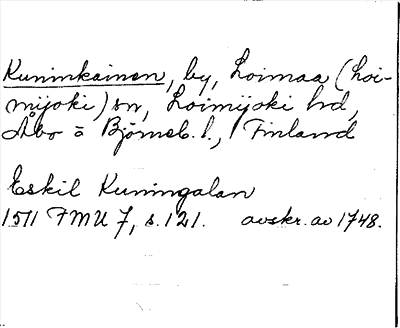 Kuninkainen, by, Loimaa (Loi-
mijoki) sn, Loimijoki hd,
Åbo o Björneb. l., Finland
Eskil Kuningalan
1511 FMU 7, s. 121. avskr. av 1748.